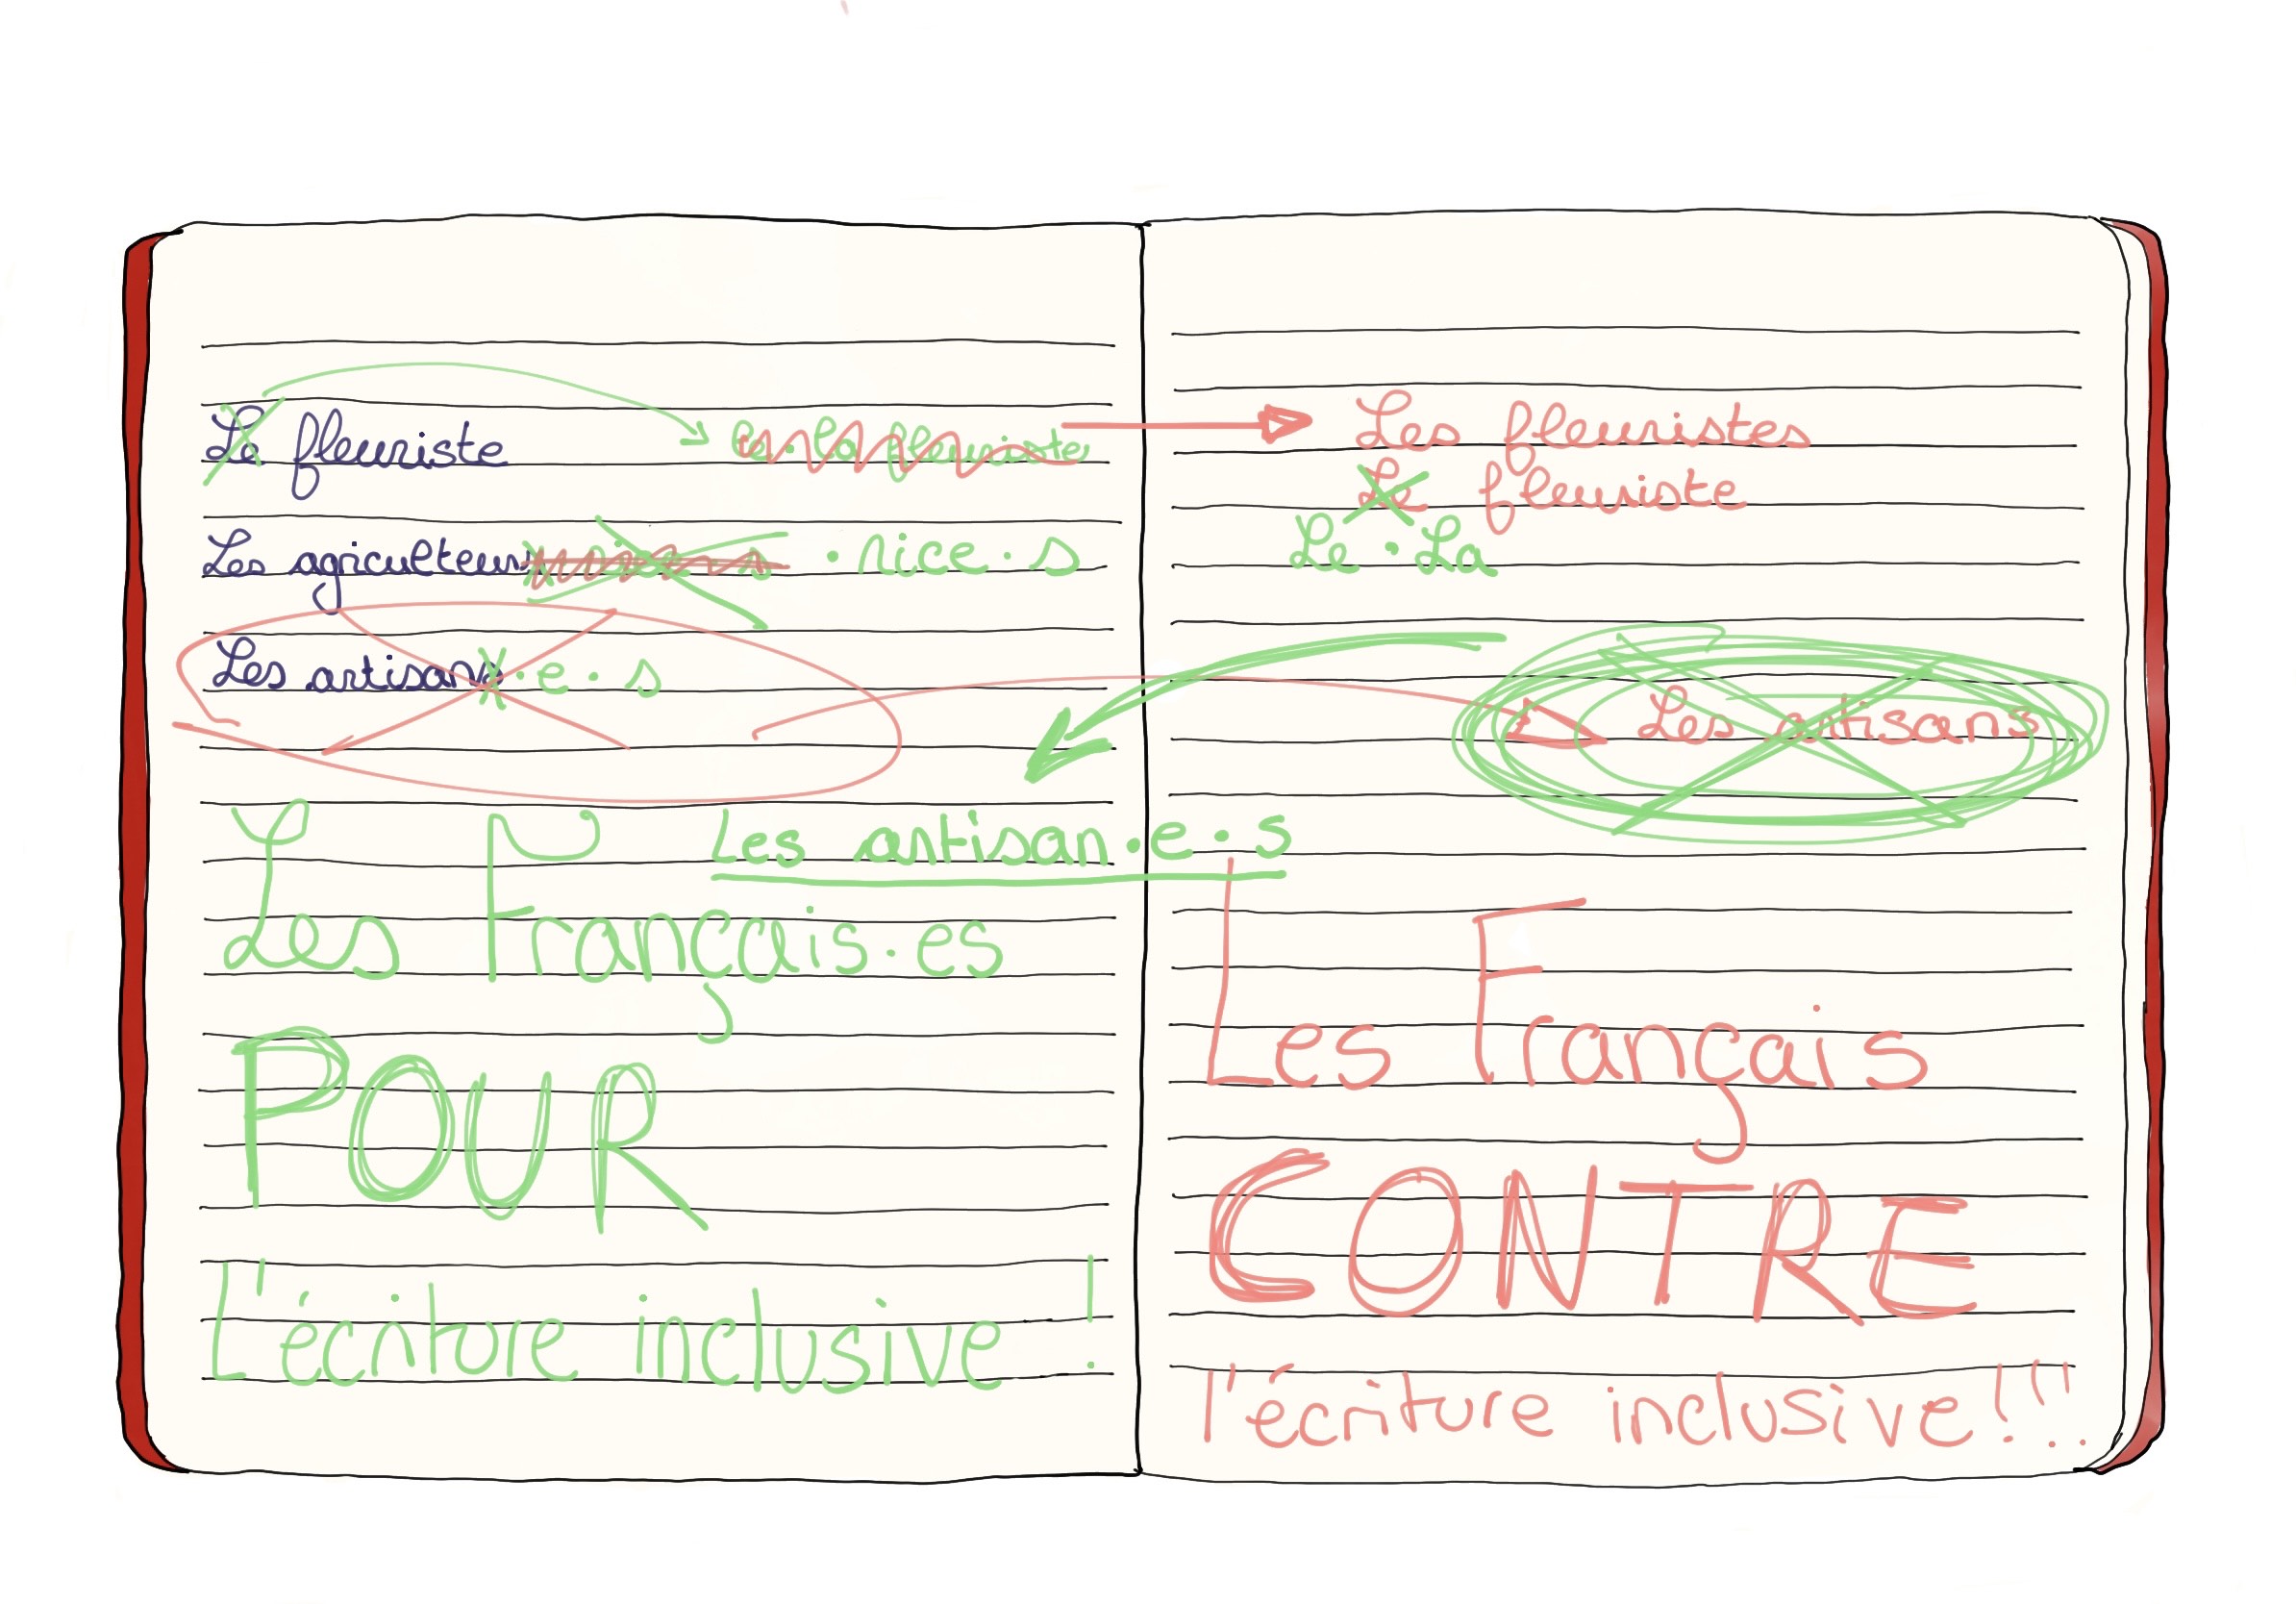 Le fleuriste Le·La fleuriste
Les agriculteurs ·rice·s
Les artisans ·e·s
Les artisan·e·s
Les Français·es
POUR
L'écriture inclusive !
Les fleuristes
Le fleuriste
Le·La
Les artisans
Les Français
CONTRE
l'écriture inclusive!!!